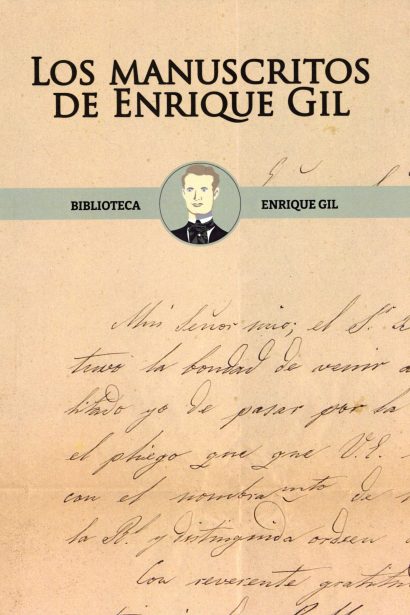 LOS MANUSCRITOS
DE ENRIQUE GIL
BIBLIOTECA
ENRIQUE GIL
Muy Señor mio; el Sr.
tuvo la bondad de venir a
litado yo de pasar por la
el pliego que que V.E.
con el nombramto de
la Rl. y distinguida orden
Con reverente gratitu